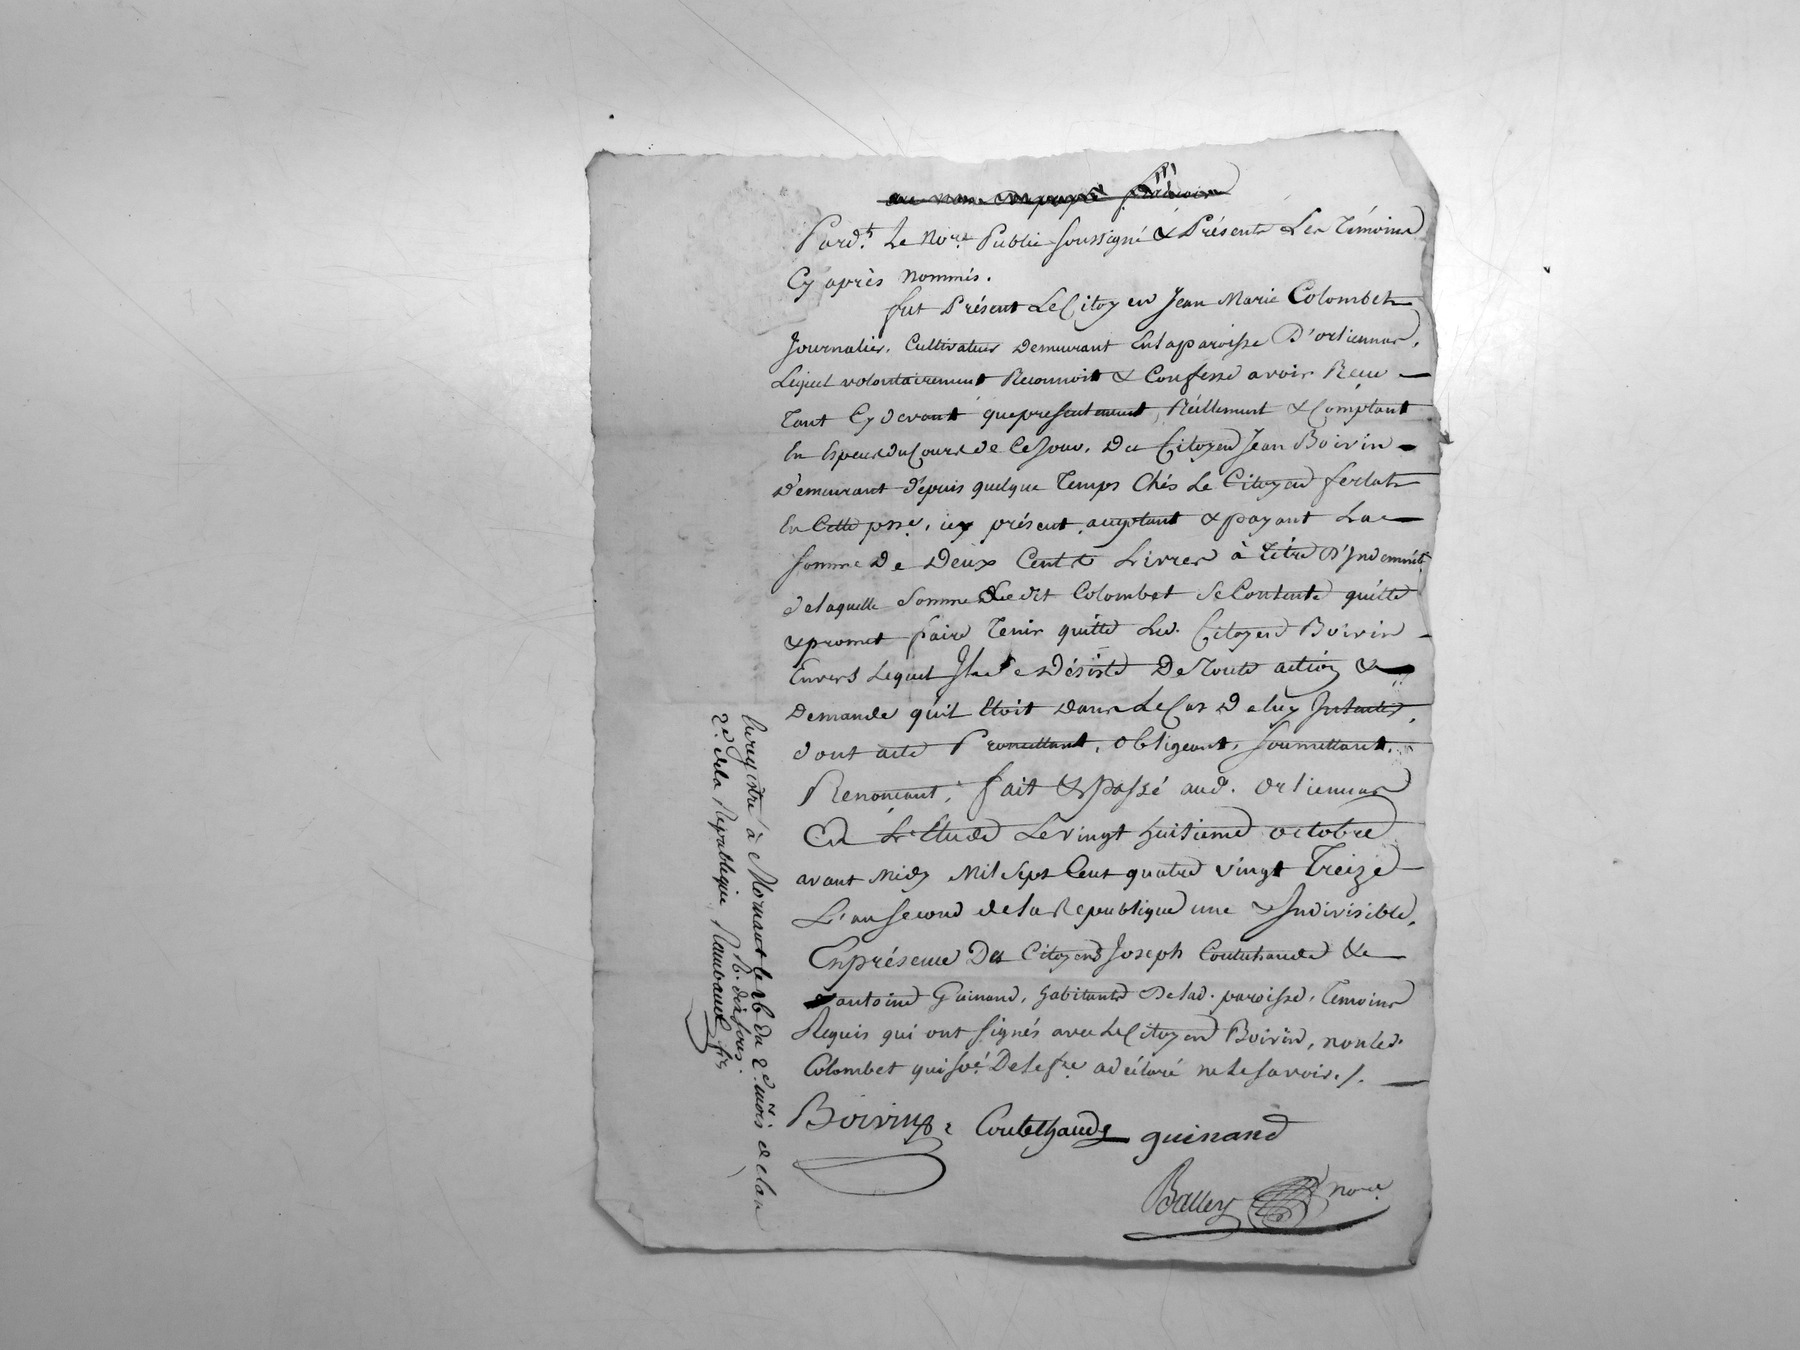 au nom du peuple français
Pard.t Le No.re Public soussigné & Présents Les Témoins
Cy après Nommés.
fut Présent Le Citoyen Jean Marie Colombet
Journalier, Cultivateur Demeurant En la paroisse D'orliennas,
Lequel volontairement Reconnoit & Confesse avoir Recu
Tant Cy devant que presentement, Réellement & Comptant
En Espece du Cours de Ce Jour, Du Citoyen Jean Boivin
Demeurant depuis quelque Temps Chés Le Citoyen ferlat
En Cette psse, icy présent, aceptant & payant La
somme De Deux Cent Livres à titre D'Indemnité
de laquelle somme Ledit Colombet Se Contente quitte
& promet faire Tenir quitte Led. Citoyen Boivin
Envers Lequel Il se Désiste De Toute action &
Demande qu'il Etoit Dans Le Cas De luy Intenter,
dont acte Promettant, obligeant, soumettant,
Renoncant, fait & Passé aud. Orliennas
En L'Etude Le vingt huitieme octobre
avant Midy Mil Sept Cent quatre vingt Treize
L'an second de la Republique une & Indivisible,
En présence Des Citoyens Joseph Coutuhaude &
antoine Guinand, habitants De lad. paroisse, Temoins
Requis qui ont signés avec Le Citoyen Boivin, non led.
Colombet qui De Le fre a déclaré ne le savoir./.
Boivin Coutethaude guinand
Balley no.re
Enregistré à Mornant le 6 du 2.d mois de l'an
2.e de la Republique, R. dix sous.
Rambaud fs